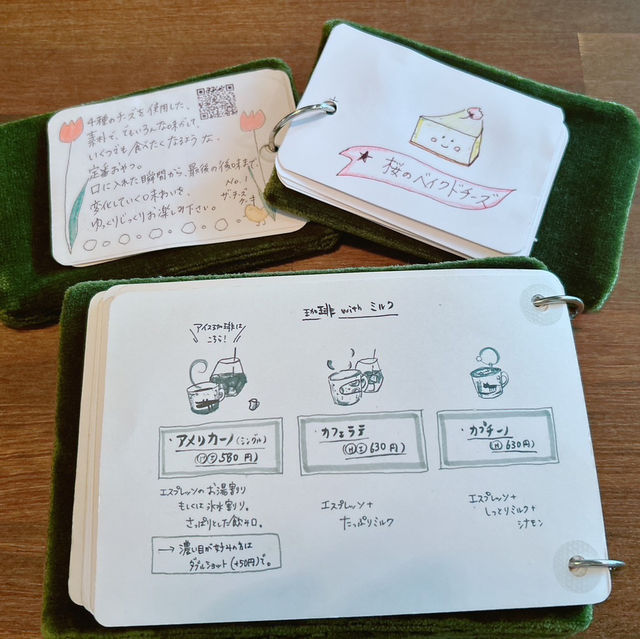 4種のチーズを使用した、
素朴で、でいろんな味がして、
いくつでも食べたくなるような、
定番おやつ。
口に入れた瞬間から、最後の後味まで、
変化していく味わいを、
ゆっくりじっくりお楽しみ下さい。
No.1
ザ・チーズ
ケーキ
桜のベイクドチーズ
珈琲 with ミルク
アイス珈琲は
こちら!
・アメリカーノ(シングル)
580円)
エスプレッソのお湯割り
もしくは氷水割り。
さっぱりとした飲み口。
→ 濃い目が好みの方は
ダブルショット(+50円)で。
・カフェラテ
630円)
エスプレッソ+
たっぷりミルク
・カプチーノ
(H 630円)
エスプレッソ+
しっとりミルク+
シナモン